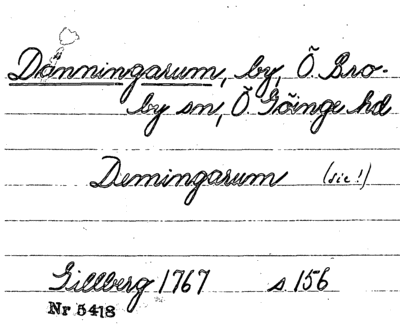 Dänningarum, by, Ö. Bro-
by sn, Ö. Göinge hd
Demingarum (sic!)
Gillberg 1767 s. 156
Nr 5418